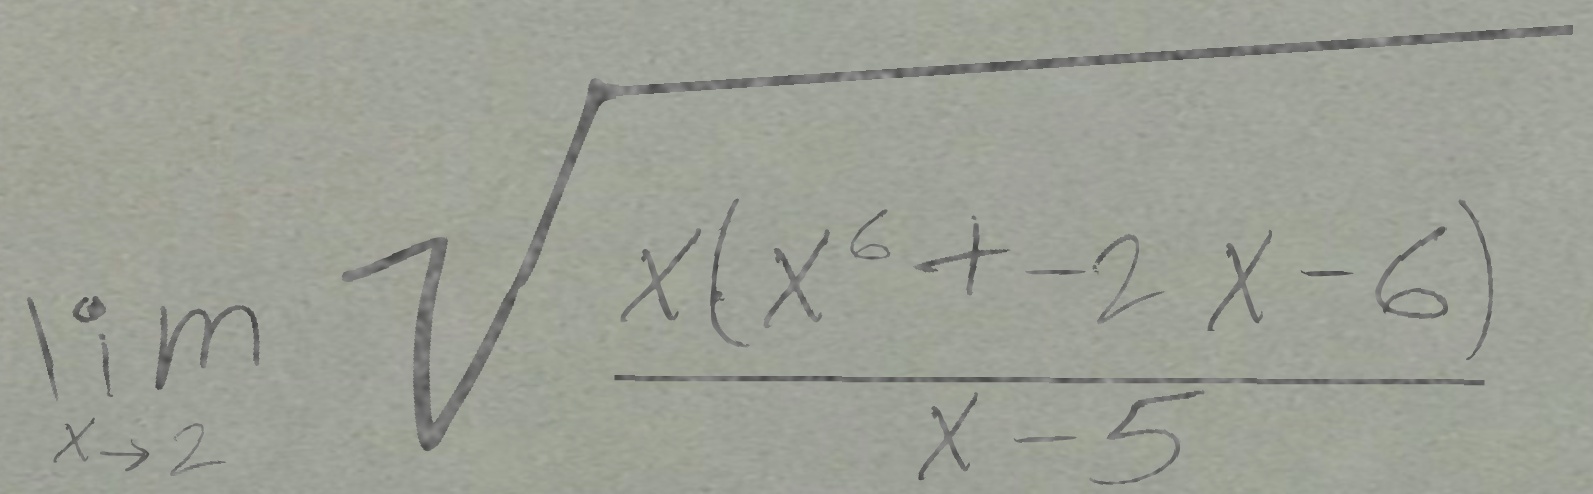 \lim_{x \to 2} \sqrt{\frac{x(x^6 + -2x - 6)}{x - 5}}